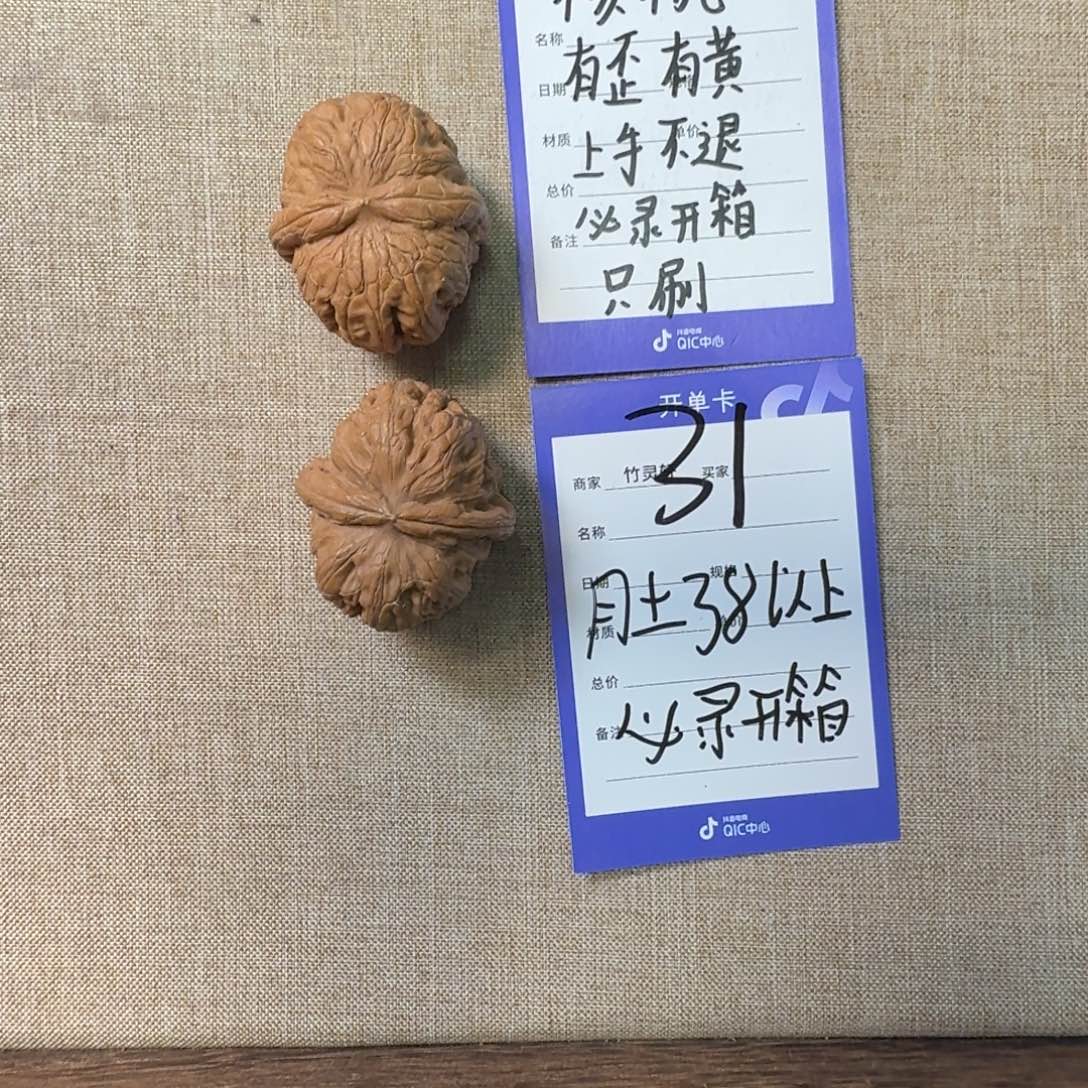 核桃
名称
有歪 有黄
日期
材质 单价
上手不退
总价
必录开箱
备注
只刷
抖音电商
QIC中心
开单卡
31
商家 竹灵 买家
名称
日期 规格
月土38以上
材质
总价
必录开箱
备注
抖音电商
QIC中心